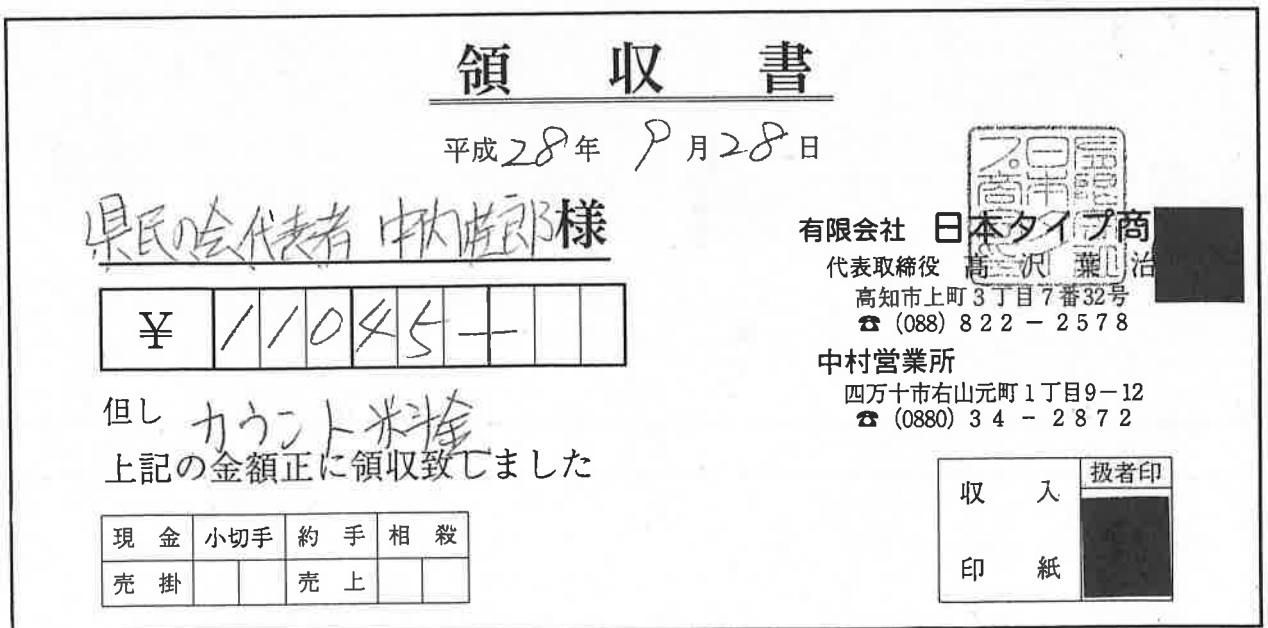 領収書
平成28年 9月28日
県民の会代表者 中内桂郎様
¥ 11045-
但し カウント料金
上記の金額正に領収致しました
現金 小切手 約手 相殺
売掛 売上
有限会社 日本タイプ商
代表取締役 高沢葉治
高知市上町3丁目7番32号
☎ (088) 822-2578
中村営業所
四万十市右山元町1丁目9-12
☎ (0880) 34-2872
収入
印紙
扱者印